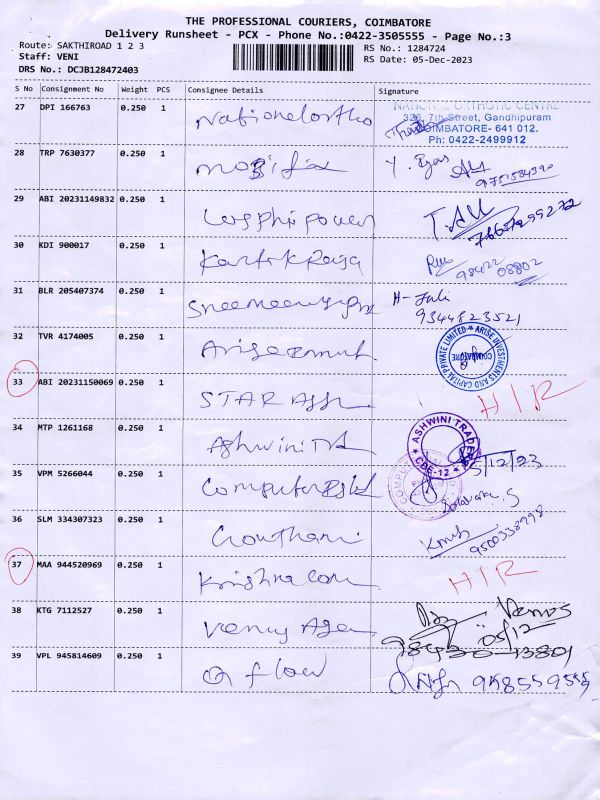 THE PROFESSIONAL COURIERS, COIMBATORE
Delivery Runsheet - PCX - Phone No.:0422-3505555 - Page No.:3
Route: SAKTHIROAD 1 2 3
RS No.: 1284724
Staff: VENI
RS Date: 05-Dec-2023
DRS No.: DCJB128472403
S No Consignment No Weight PCS Consignee Details Signature
27 DPI 166763 0.250 1 Nationalortho
NATIONAL ORTHOTIC CENTRE
326, 7th Street, Gandhipuram
COIMBATORE- 641 012.
Ph: 0422-2499912
28 TRP 7630377 0.250 1
29 ABI 20231149832 0.250 1
30 KDI 900017 0.250 1 KartikRaja
98422 08802
31 BLR 205407374 0.250 1
9344823521
32 TVR 4174005 0.250 1
ARISE INVESTMENTS AND CAPITAL PRIVATE LIMITED
COIMBATORE
33 ABI 20231150069 0.250 1 STAR HIR
34 MTP 1261168 0.250 1 Ashwini
ASHWINI TRADERS
CBE-12
5/12/23
35 VPM 5266044 0.250 1 Computer
36 SLM 334307323 0.250 1 Gowtham
9500338998
37 MAA 944520969 0.250 1 Krishna HIR
38 KTG 7112527 0.250 1 Venus Agen Venus
05/12
39 VPL 945814609 0.250 1 Q flow